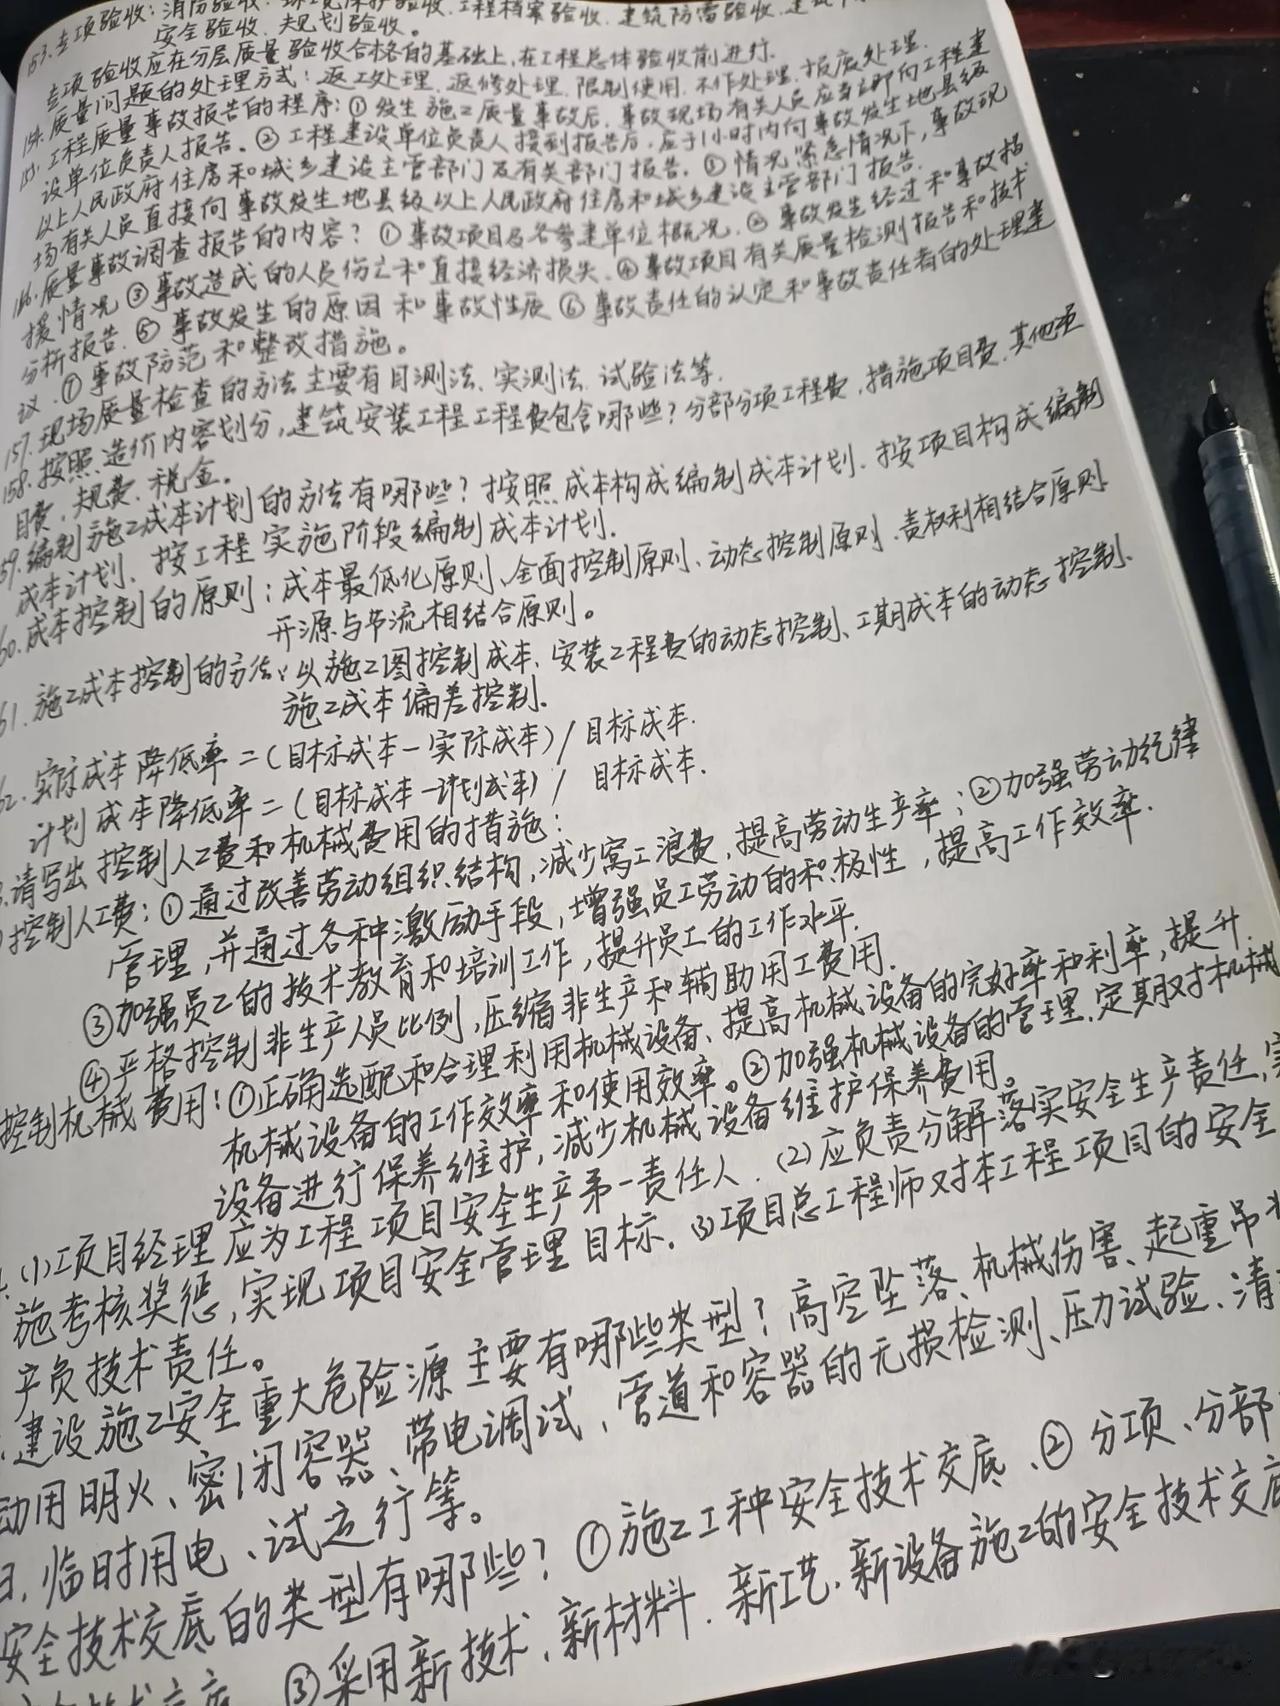 153.专项验收:消防验收.环境保护验收.工程档案验收.建筑防雷验收.
安全验收.规划验收。
专项验收应在分层质量验收合格的基础上,在工程总体验收前进行.
154.质量问题的处理方式:返工处理.返修处理.限制使用.不作处理.报废处理.
155.工程质量事故报告的程序:①发生施工质量事故后,事故现场有关人员应当立即向工程建
设单位负责人报告。②工程建设单位负责人接到报告后,应于1小时内向事故发生地县级
以上人民政府住房和城乡建设主管部门及有关部门报告.③情况紧急情况下,事故现
场有关人员直接向事故发生地县级以上人民政府住房和城乡建设主管部门报告.
156.质量事故调查报告的内容?①事故项目及各参建单位概况.②事故发生经过和事故
援情况③事故造成的人员伤亡和直接经济损失.④事故项目有关质量检测报告和技术
分析报告.⑤事故发生的原因和事故性质⑥事故责任的认定和事故责任者的处理建
议.⑦事故防范和整改措施。
157.现场质量检查的方法主要有目测法、实测法.试验法等.
158.按照造价内容划分,建筑安装工程工程费包含哪些?分部分项工程费,措施项目费.其他项
目费.规费.税金。
59.编制施工成本计划的方法有哪些?按照成本构成编制成本计划.按项目构成编制
成本计划.按工程实施阶段编制成本计划.
60.成本控制的原则:成本最低化原则、全面控制原则、动态控制原则.责权利相结合原则.
开源与节流相结合原则。
61.施工成本控制的方法:以施工图控制成本.安装工程费的动态控制、工期成本的动态控制.
施工成本偏差控制.
62.实际成本降低率=(目标成本-实际成本)/目标成本.
计划成本降低率=(目标成本-计划成本)/目标成本.
3.请写出控制人工费和机械费用的措施:
控制人工费:①通过改善劳动组织结构,减少窝工浪费,提高劳动生产率;②加强劳动纪律
管理,并通过各种激励手段,增强员工劳动的积极性,提高工作效率.
③加强员工的技术教育和培训工作,提升员工的工作水平.
④严格控制非生产人员比例,压缩非生产和辅助用工费用.
控制机械费用:①正确选配和合理利用机械设备、提高机械设备的完好率和利率,提升.
机械设备的工作效率和使用效率。②加强机械设备的管理.定期对机械
设备进行保养维护,减少机械设备维护保养费用。
(1)项目经理应为工程项目安全生产第一责任人.(2)应负责分解落实安全生产责任,实
施考核奖惩,实现项目安全管理目标.(3)项目总工程师对本工程项目的安全
产负技术责任。
建设施工安全重大危险源主要有哪些类型?高空坠落、机械伤害、起重吊
动用明火、密闭容器、带电调试、管道和容器的无损检测、压力试验、清
临时用电、试运行等。
安全技术交底的类型有哪些?①施工工种安全技术交底、②分项、分部
③采用新技术、新材料.新工艺.新设备施工的安全技术交底